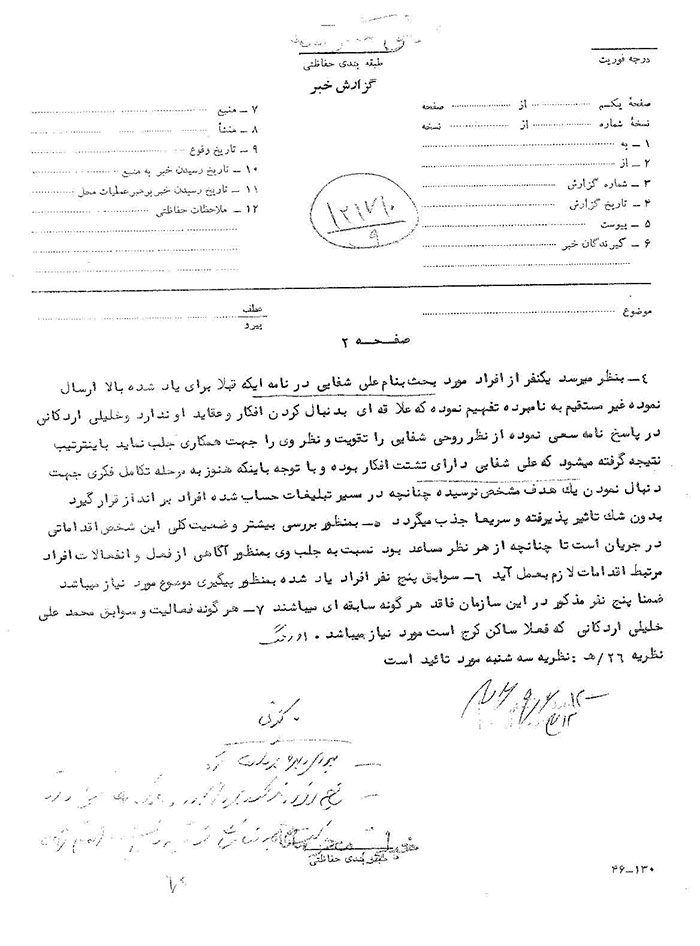 طبقه بندی حفاظتی
گزارش خبر
درجه فوریت
صفحهٔ یکسم از صفحه
نسخهٔ شماره از نسخه
۱ – به
۲ – از
۳ – شماره گزارش
۴ – تاریخ گزارش
۵ – پیوست
۶ – گیرندگان خبر
۷ – منبع
۸ – منشأ
۹ – تاریخ وقوع
۱۰ – تاریخ رسیدن خبر به منبع
۱۱ – تاریخ رسیدن خبر برهبر عملیات محل
۱۲ – ملاحظات حفاظتی
موضوع
عطف
پیرو
صفحه ۲
۴ــ بنظر میرسد یکنفر از افراد مورد بحث بنام علی شفایی در نامه ایکه قبلا برای یاد شده بالا ارسال
نموده غیر مستقیم به نامبرده تفهیم نموده که علاقه ای بدنبال کردن افکار و عقاید او ندارد وخلیلی اردکانی
در پاسخ نامه سعی نموده از نظر روحی شفایی را تقویت و نظر وی را جهت همکاری جلب نماید باینترتیب
نتیجه گرفته میشود که علی شفایی دارای تشتت افکار بوده و با توجه باینکه هنوز به مرحله تکامل فکری جهت
دنبال نمودن یک هدف مشخص نرسیده چنانچه در مسیر تبلیغات حساب شده افراد بر انداز قرار گیرد
بدون شک تاثیر پذیرفته و سریعا جذب میگردد ۵ــ بمنظور بررسی بیشتر و وضعیت کلی این شخص اقداماتی
در جریان است تا چنانچه از هر نظر مساعد بود نسبت به جلب وی بمنظور آگاهی از فعل و انفعالات افراد
مرتبط اقدامات لازم بعمل آید ۶ــ سوابق پنج نفر افراد یاد شده بمنظور پیگیری موضوع مورد نیاز میباشد
ضمنا پنج نفر مذکور در این سازمان فاقد هر گونه سابقه ای میباشند ۷ــ هر گونه فعالیت و سوابق محمد علی
خلیلی اردکانی که فعلا ساکن کرج است مورد نیاز میباشد . اورنگ
نظریه ۲۶/هـ : نظریه سه شنبه مورد تائید است
طبقه بندی حفاظتی
۴۶–۱۳۰